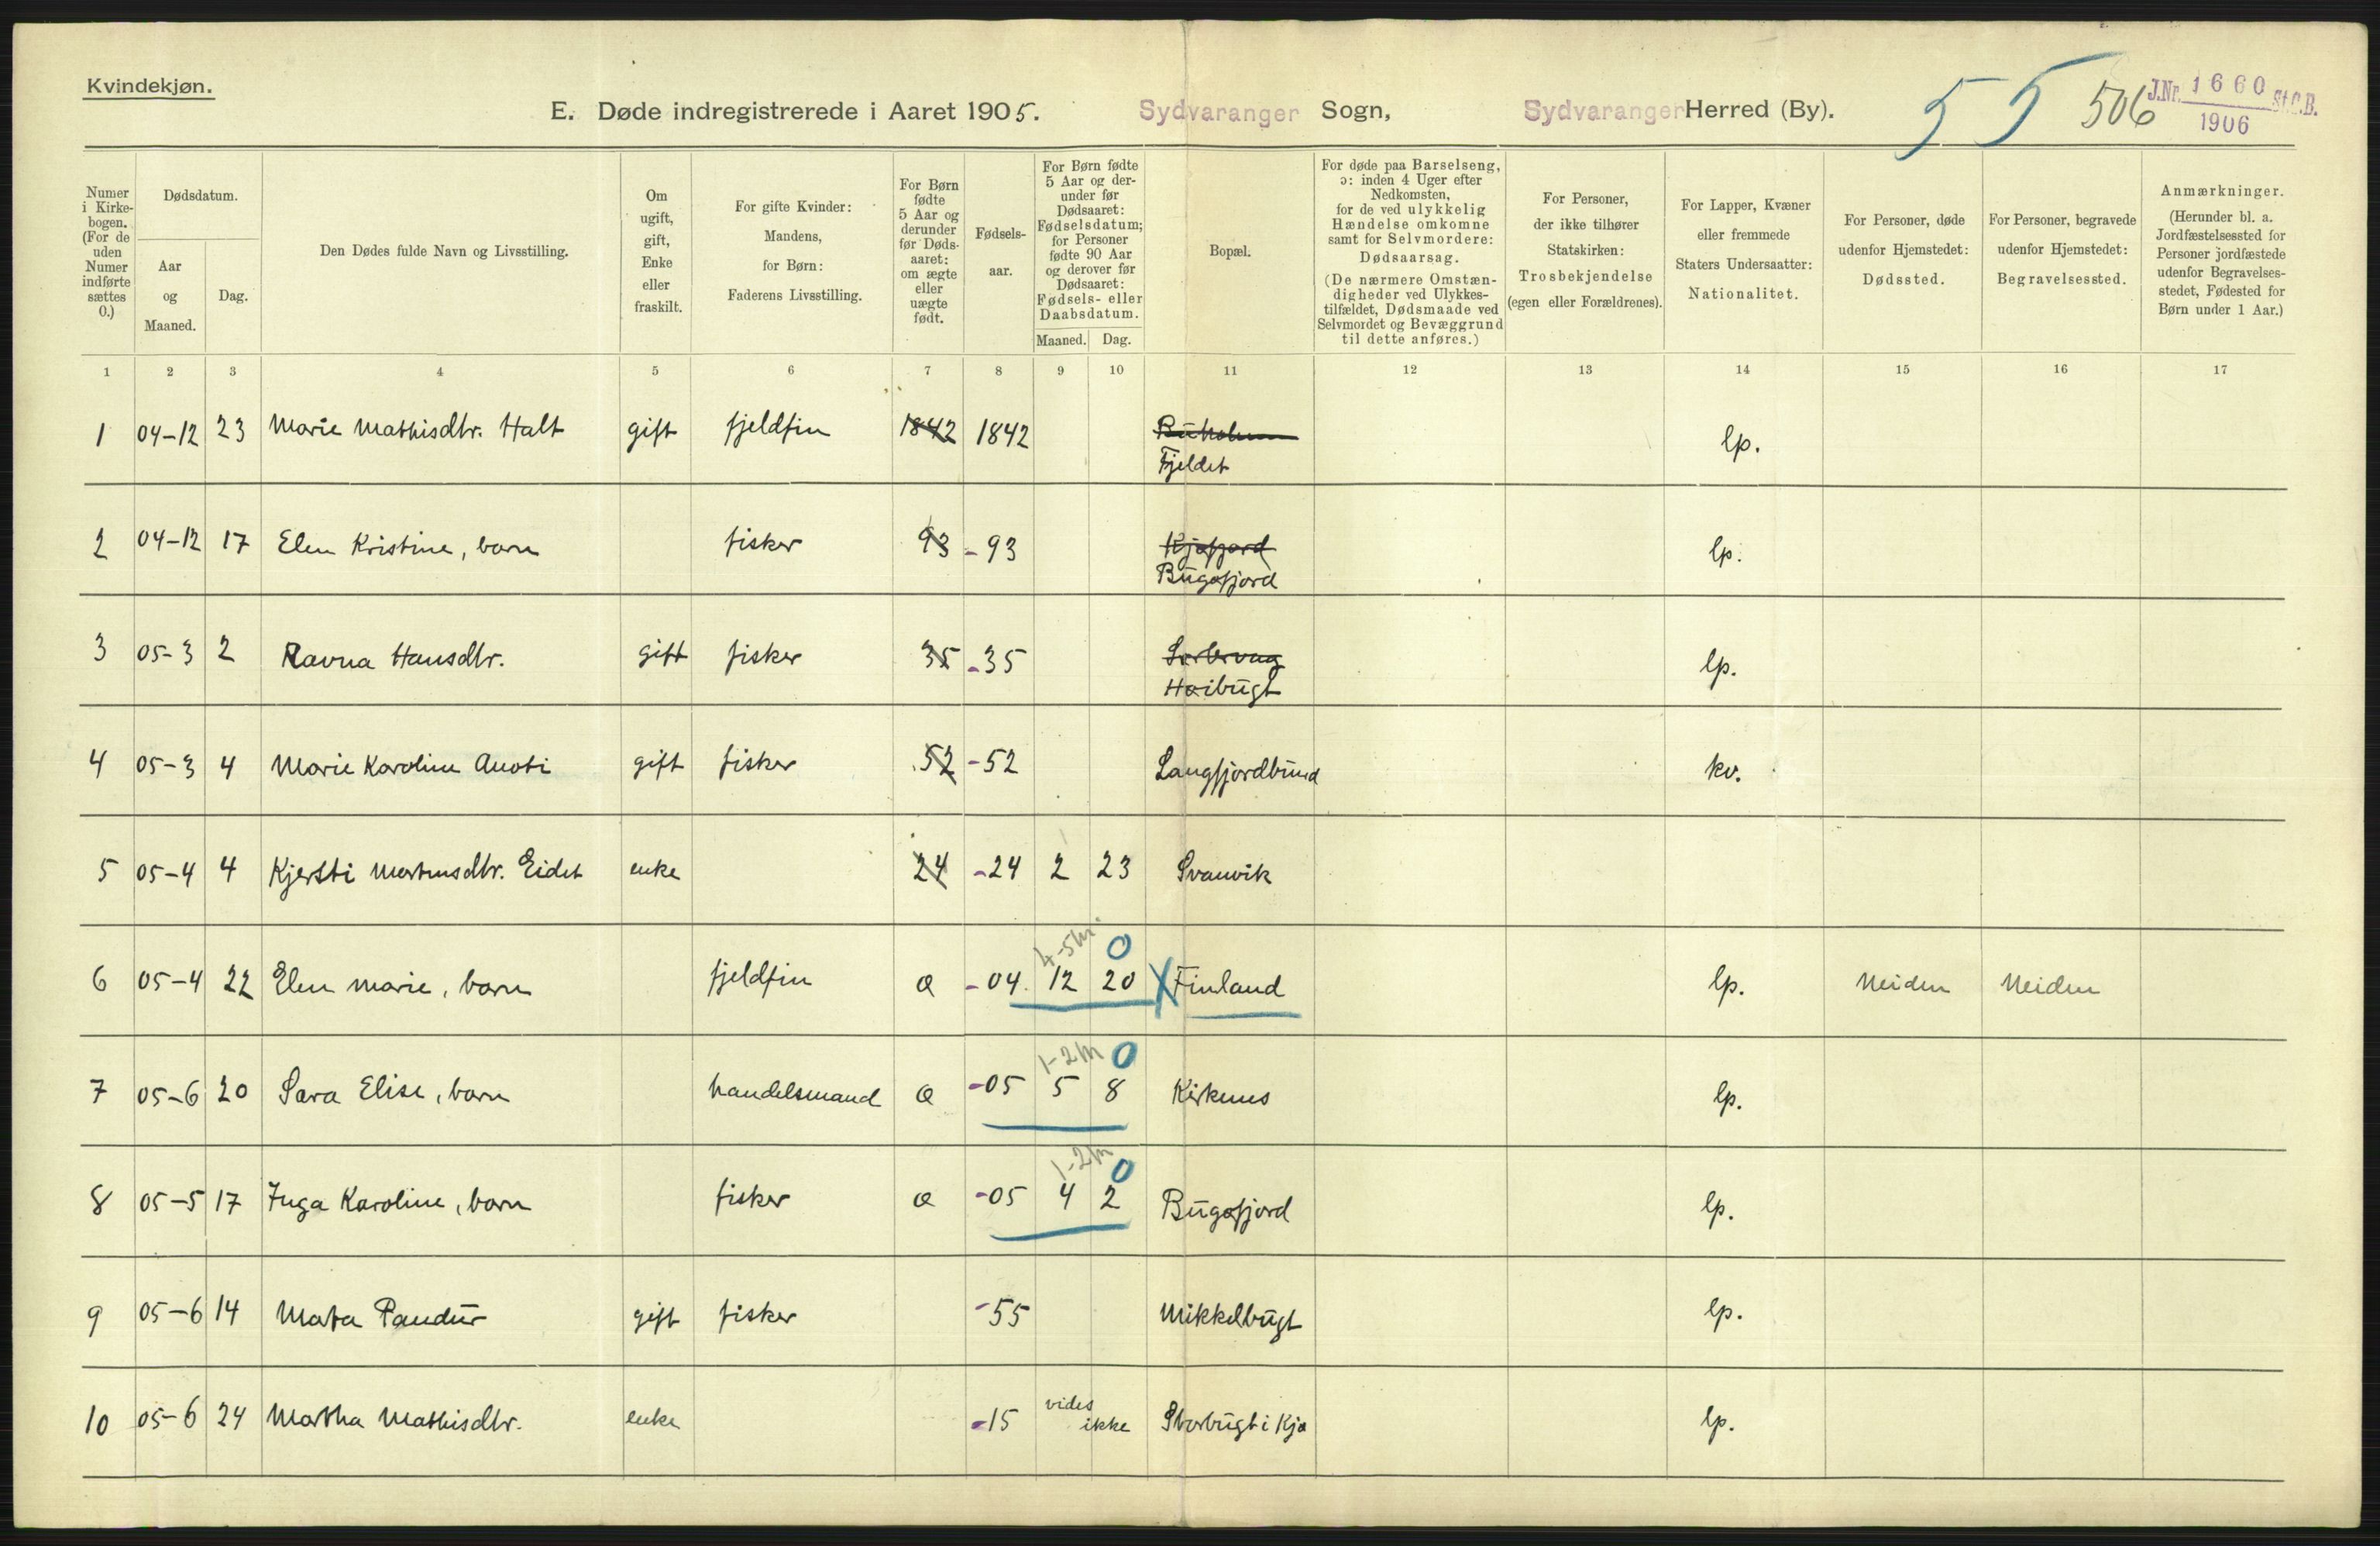 Kvindekjøn.
E. Døde indregistrerede i Aaret 1905. Sydvaranger Sogn, Sydvaranger Herred (By). 55 506 J.Nr. 1660 St.C.B.
1906
Numer i Kirkebogen. (For de uden Numer indførte sættes 0.)
Dødsdatum.
Aar og Maaned.
Dag.
Den Dødes fulde Navn og Livsstilling.
Om ugift, gift, Enke eller fraskilt.
For gifte Kvinder: Mandens, for Børn: Faderens Livsstilling.
For Børn fødte 5 Aar og derunder før Dødsaaret: om ægte eller uægte født.
Fødselsaar.
For Børn fødte 5 Aar og derunder før Dødsaaret: Fødselsdatum; for Personer fødte 90 Aar og derover før Dødsaaret: Fødsels- eller Daabsdatum.
Maaned. Dag.
Bopæl.
For døde paa Barselseng, ɔ: inden 4 Uger efter Nedkomsten, for de ved ulykkelig Hændelse omkomne samt for Selvmordere: Dødsaarsag.
(De nærmere Omstændigheder ved Ulykkestilfældet, Dødsmaade ved Selvmordet og Bevæggrund til dette anføres.)
For Personer, der ikke tilhører Statskirken: Trosbekjendelse (egen eller Forældrenes).
For Lapper, Kvæner eller fremmede Staters Undersaatter: Nationalitet.
For Personer, døde udenfor Hjemstedet: Dødssted.
For Personer, begravede udenfor Hjemstedet: Begravelsessted.
Anmærkninger.
(Herunder bl. a. Jordfæstelsessted for Personer jordfæstede udenfor Begravelsesstedet, Fødested for Børn under 1 Aar.)
1 2 3 4 5 6 7 8 9 10 11 12 13 14 15 16 17
1 04-12 23 Marie Mathisdtr. Halt gift fjeldfin 1842 1842 lp.
Fjeldet
2 04-12 17 Elen Kristine, barn fisker 93 -93 Kjøfjord lp.
Bugøfjord
3 05-3 2 Ravna Hansdtr. gift fisker 35 -35 lp.
Høibugt
4 05-3 4 Marie Karoline Anoti gift fisker 52 -52 Langfjordbund kv.
5 05-4 4 Kjersti Mortensdtr. Eidet enke 24 -24 2 23 Svanvik
4-5m 0
6 05-4 22 Elen Marie, barn fjeldfin æ -04 12 20 X Finland lp. Neiden Neiden
1-2m 0
7 05-6 20 Sara Elise, barn handelsmand æ -05 5 8 Kirkenes lp.
1-2m 0
8 05-5 17 Inga Karoline, barn fisker æ -05 4 2 Bugøfjord lp.
9 05-6 14 Mata Pandur gift fisker -55 Mikkelbugt lp.
10 05-6 24 Martha Mathisdtr. enke -15 vides ikke Storbugt i Kjø lp.